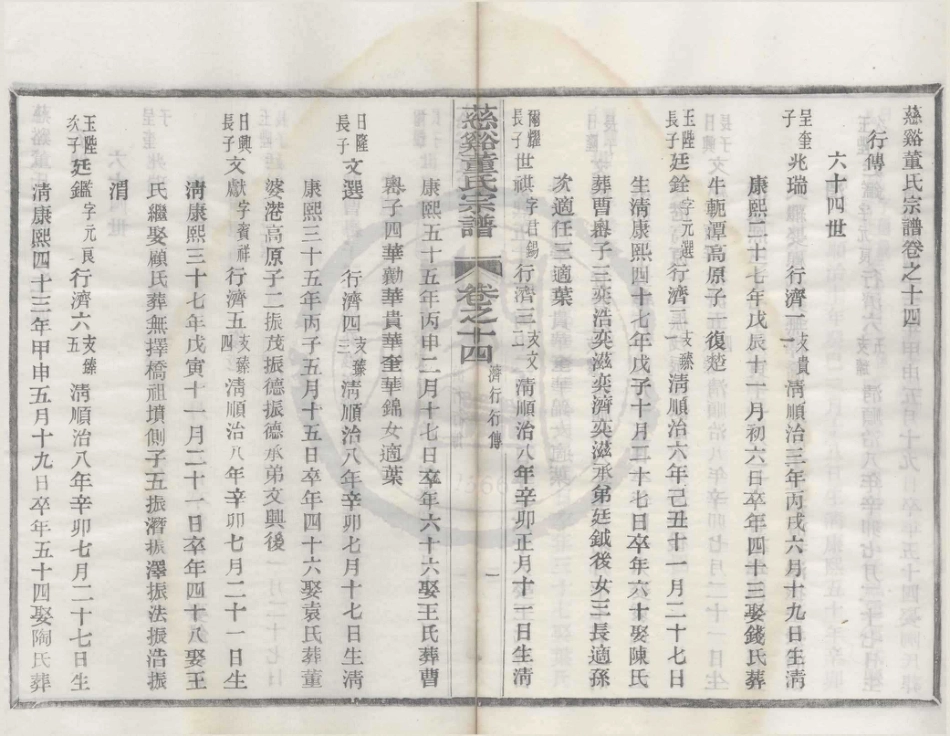 慈谿董氏宗譜卷之十四
行傳
六十四世
呈奎子兆瑞 行濟一支貴 清順治三年丙戌六月十九日生清
康熙二十七年戊辰十一月初六日卒年四十三娶錢氏葬
牛軛潭高原子一復楚
玉陞長子廷銓字元選行濟二支臻清順治六年己丑十一月二十七日
生清康熙四十七年戊子十月二十七日卒年六十娶陳氏
葬曹嶴子三奕浩奕滋奕濟奕滋承弟廷鉞後女三長適孫
次適任三適葉
爾燿長子世祺字君錫行濟三支文清順治八年辛卯正月十二日生清
慈谿董氏宗譜 卷之十四 濟行行傳 一
康熙五十五年丙申二月十七日卒年六十六娶王氏葬曹
嶴子四華勳華貴華奎華錦女適葉
日隆長子文選 行濟四支臻清順治八年辛卯七月十七日生清
康熙三十五年丙子五月十五日卒年四十六娶袁氏葬董
婆港高原子二振茂振德振德承弟文興後
日興長子文獻字賓祥行濟五支臻清順治八年辛卯七月二十一日生
清康熙三十七年戊寅十一月二十一日卒年四十八娶王
氏繼娶顧氏葬無擇橋祖墳側子五振濳振澤振法振浩振
渭
玉陞次子廷鑑字元良行濟六支臻清順治八年辛卯七月二十七日生
清康熙四十三年甲申五月十九日卒年五十四娶陶氏葬